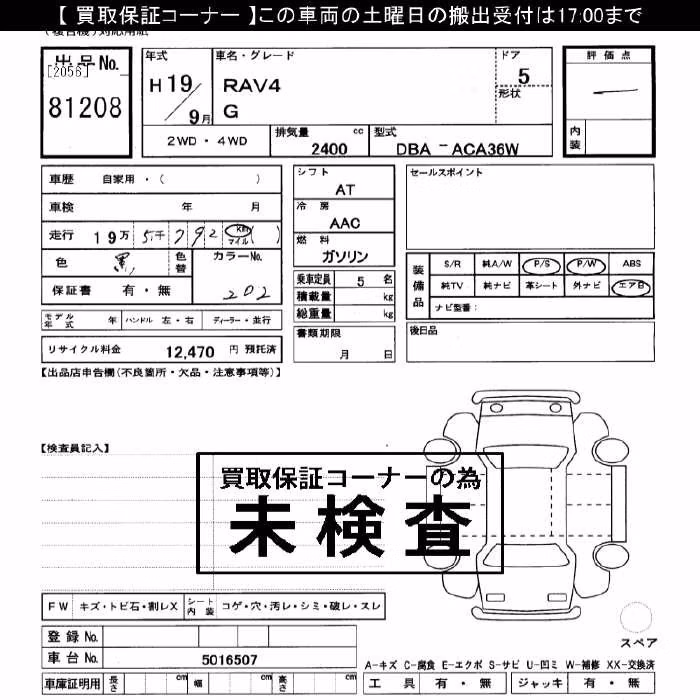 【 買取保証コーナー 】この車両の土曜日の搬出受付は17:00まで
出品No.
[2056]
81208
年式
H 19/9月
車名・グレード
RAV4
G
ドア
5
形状
評価点
内装
2WD ・ 4WD
排気量 cc
2400
型式
DBA － ACA36W
車歴 自家用 ・ ( )
車検 年 月
走行 19万 5千 792 km マイル ( )
色 黒 色替 カラーNo. 202
保証書 有 ・ 無
シフト
AT
冷房
AAC
燃料
ガソリン
乗車定員 5 名
積載量 kg
総重量 kg
セールスポイント
装備品
S/R 純A/W P/S P/W ABS
純TV 純ナビ 革シート 外ナビ エアB
ナビ型番：
モデル年式 年 ハンドル 左 ・ 右 ディーラー ・ 並行
書類期限
月 日
後日品
リサイクル料金 12,470 円 預託済
【出品店申告欄(不良箇所・欠品・注意事項等)】
【検査員記入】
買取保証コーナーの為
未検査
FW キズ・トビ石・割レX シート内装 コゲ・穴・汚レ・シミ・破レ・スレ
スペア
登録No.
車台No. 5016507
A-キズ C-腐食 E-エクボ S-サビ U-凹ミ W-補修 XX-交換済
車庫証明用 長さ cm 幅 cm 高さ cm
工具 有 ・ 無 ジャッキ 有 ・ 無